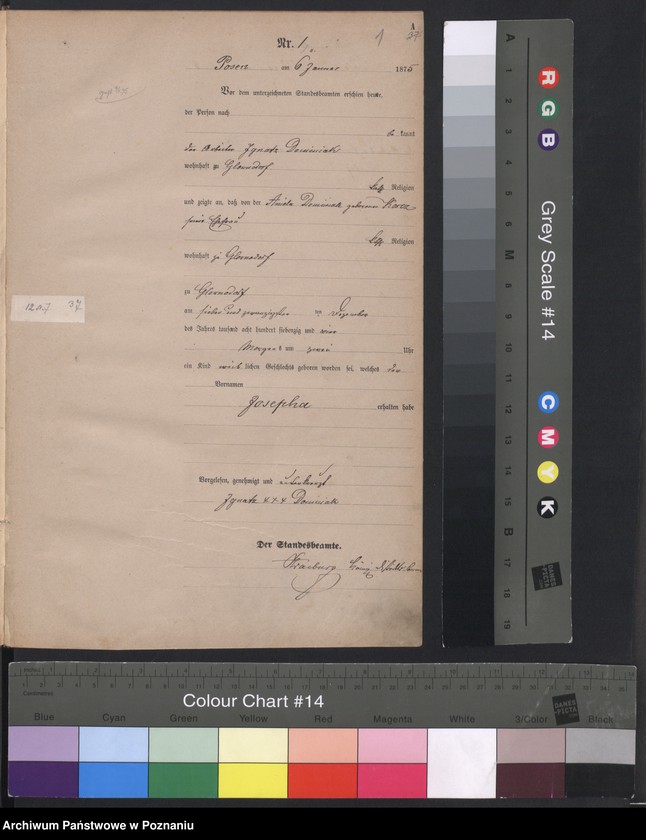 A
Nr. 1
1
Posen am 6 Januar 1875
Vor dem unterzeichneten Standesbeamten erschien heute,
der Person nach
kannt
der Arbeiter Ignatz Dominiak
wohnhaft zu
kath Religion
und zeigte an, daß von der Aniela Dominiak geborenen
seiner Ehefrau
kath Religion
wohnhaft zu
zu
am sieben und zwanzigsten Dezember
des Jahres tausend acht hundert siebenzig und vier
Morgens um zwei Uhr
ein Kind weiblichen Geschlechts geboren worden sei, welches den
Vornamen
Josepha erhalten habe
Vorgelesen, genehmigt und
Ignatz +++ Dominiak
Der Standesbeamte.
A 1 2 3 4 5 6 M 8 9 10 11 12 13 14 15 B 17 18 19
R G B
Grey Scale #14
C M Y K
DANES PICTA
Inches
Centimetres
Colour Chart #14
DANES PICTA
Blue Cyan Green Yellow Red Magenta White 3/Color Black
Archiwum Państwowe w Poznaniu